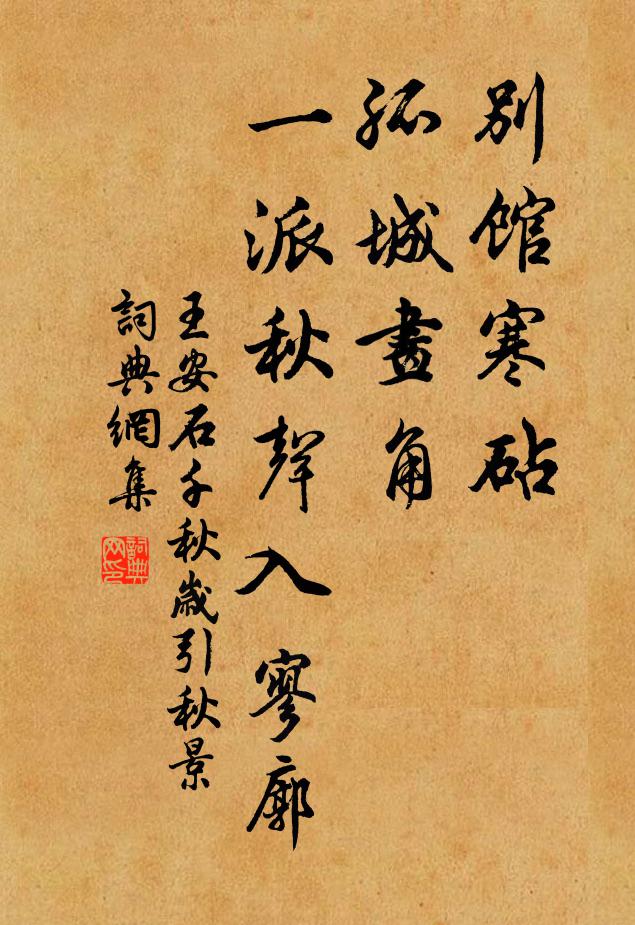 別館寒砧
孤城畫角
一派秋聲入寥廓
王安石千秋歲引秋景
詞典網集
詞典
网印